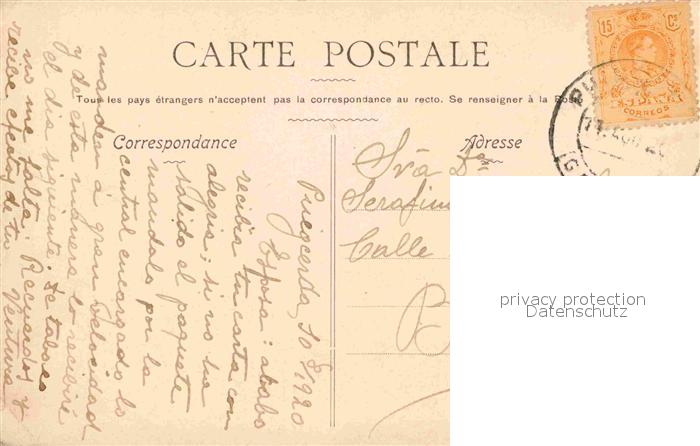 CARTE POSTALE
Tous les pays étrangers n'acceptent pas la correspondance au recto. Se renseigner à la Poste
Correspondance
Adresse
15 Cs
CORREOS
Puigcerda 10 8/1920
Esposa: acabo
recibir tu carta con
alegria; si no ha
salido el paquete
mandalo por la
central encargado lo
manden a gran velocidad
y de esta manera lo recibiré
el dia siguiente. De tabaco
no me falta. Recuerdos y
recibe efectos de tu
Ventura
Srà Da
Serafin
Calle
B
privacy protection
Datenschutz